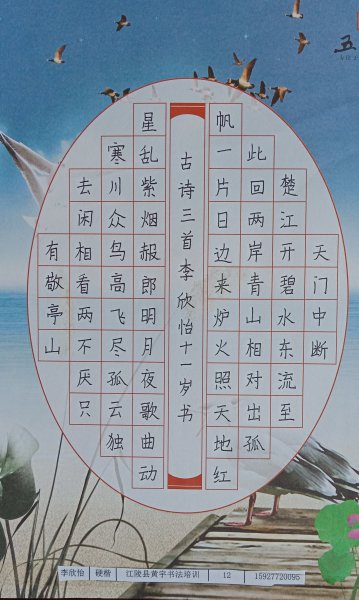 五
天门中断
楚江开碧水东流至
此回两岸青山相对出孤
帆一片日边来炉火照天地红
古诗三首李欣怡十一岁书
星乱紫烟赧郎明月夜歌曲动
寒川众鸟高飞尽孤云独
去闲相看两不厌只
有敬亭山
李欣怡 硬楷 江陵县黄宇书法培训 12 15927720095